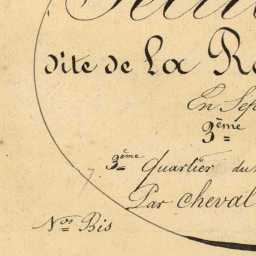 dite de La R
En Sep
3ème
3ème Quartier du
Par Cheval
Nos Bis